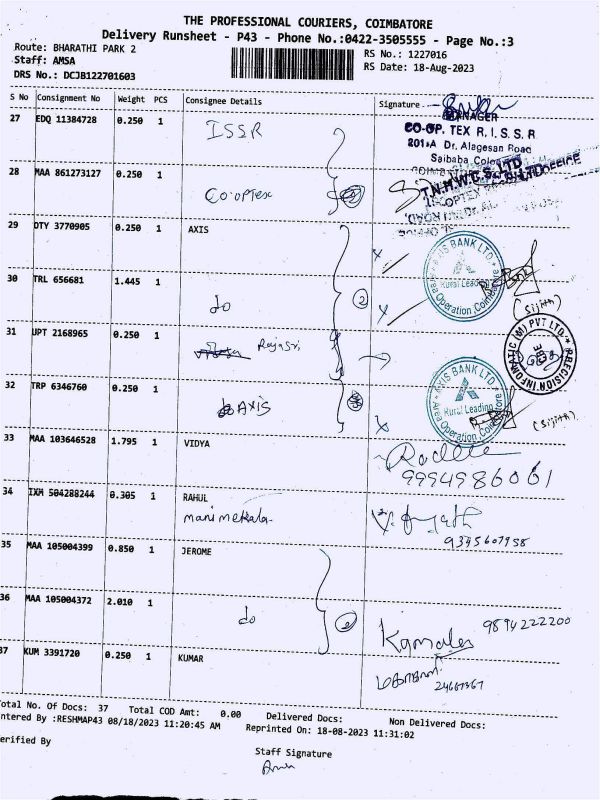 THE PROFESSIONAL COURIERS, COIMBATORE
Delivery Runsheet - P43 - Phone No.:0422-3505555 - Page No.:3
Route: BHARATHI PARK 2
Staff: AMSA
DRS No.: DCJB122701603
RS No.: 1227016
RS Date: 18-Aug-2023
S No Consignment No Weight PCS Consignee Details Signature
27 EDQ 11384728 0.250 1 ISSR
MANAGER
CO-OP. TEX R.I.S.S.R
201-A Dr. Alagesan Road
Saibaba Colony
28 MAA 861273127 0.250 1 Co.optex
T.N.H.W.C.S. LTD
29 OTY 3770905 0.250 1 AXIS
AXIS BANK LTD.
Rural Lending
Area Operation, Coimbatore
30 TRL 656681 1.445 1 do 2
(Sijith)
31 UPT 2168965 0.250 1 Rajasri
PRECISION INFOMATIC (M) PVT LTD
CBE
32 TRP 6346760 0.250 1 AXIS
AXIS BANK LTD.
Rural Lending
Area Operation, Coimbatore
(Sijith)
33 MAA 103646528 1.795 1 VIDYA
9994986061
34 IXM 504288244 0.305 1 RAHUL
manimekala
9345607958
35 MAA 105004399 0.850 1 JEROME
36 MAA 105004372 2.010 1 do 2
Kamala 9894222200
37 KUM 3391720 0.250 1 KUMAR
Total No. Of Docs: 37 Total COD Amt: 0.00 Delivered Docs: Non Delivered Docs:
Entered By :RESHMAP43 08/18/2023 11:20:45 AM Reprinted On: 18-08-2023 11:31:02
Verified By
Staff Signature